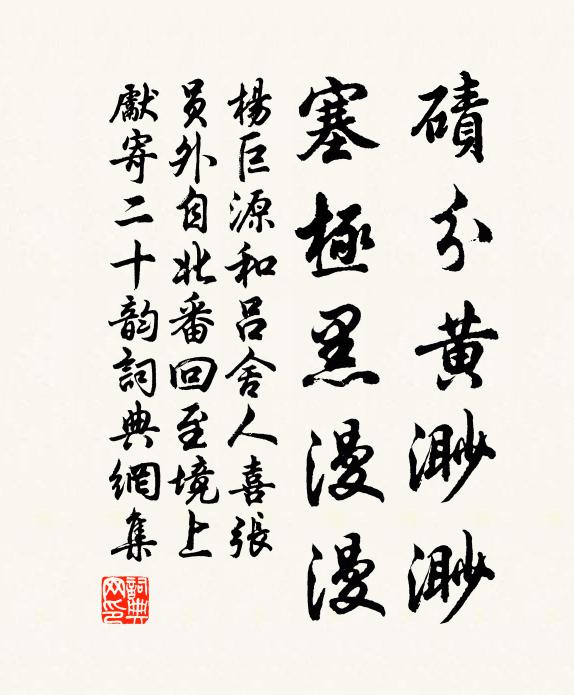 磧分黃渺渺
塞極黑漫漫
楊巨源和呂舍人喜張
員外自北番回至境上
獻寄二十韵詞典網集
詞典
网印